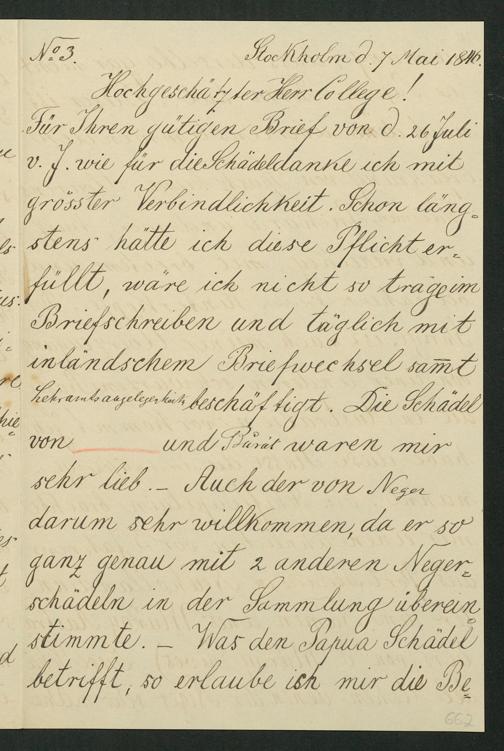 No 3. Stockholm d. 7 Mai 1846.
Hochgeschätzter Herr College!
Für Ihren gütigen Brief von d. 26 Juli
v. J. wie für die Schädel danke ich mit
grösster Verbindlichkeit. Schon läng=
stens hätte ich diese Pflicht er=
füllt, wäre ich nicht so träge im
Briefschreiben und täglich mit
inländschem Briefwechsel sam̅t
beschäftigt. Die Schädel
von und Burät waren mir
sehr lieb. – Auch der von Neger
darum sehr willkommen, da er so
ganz genau mit 2 anderen Neger=
schädeln in der Sammlung überein
stimmte. – Was den Papua Schädel
betrifft, so erlaube ich mir die Be=
662